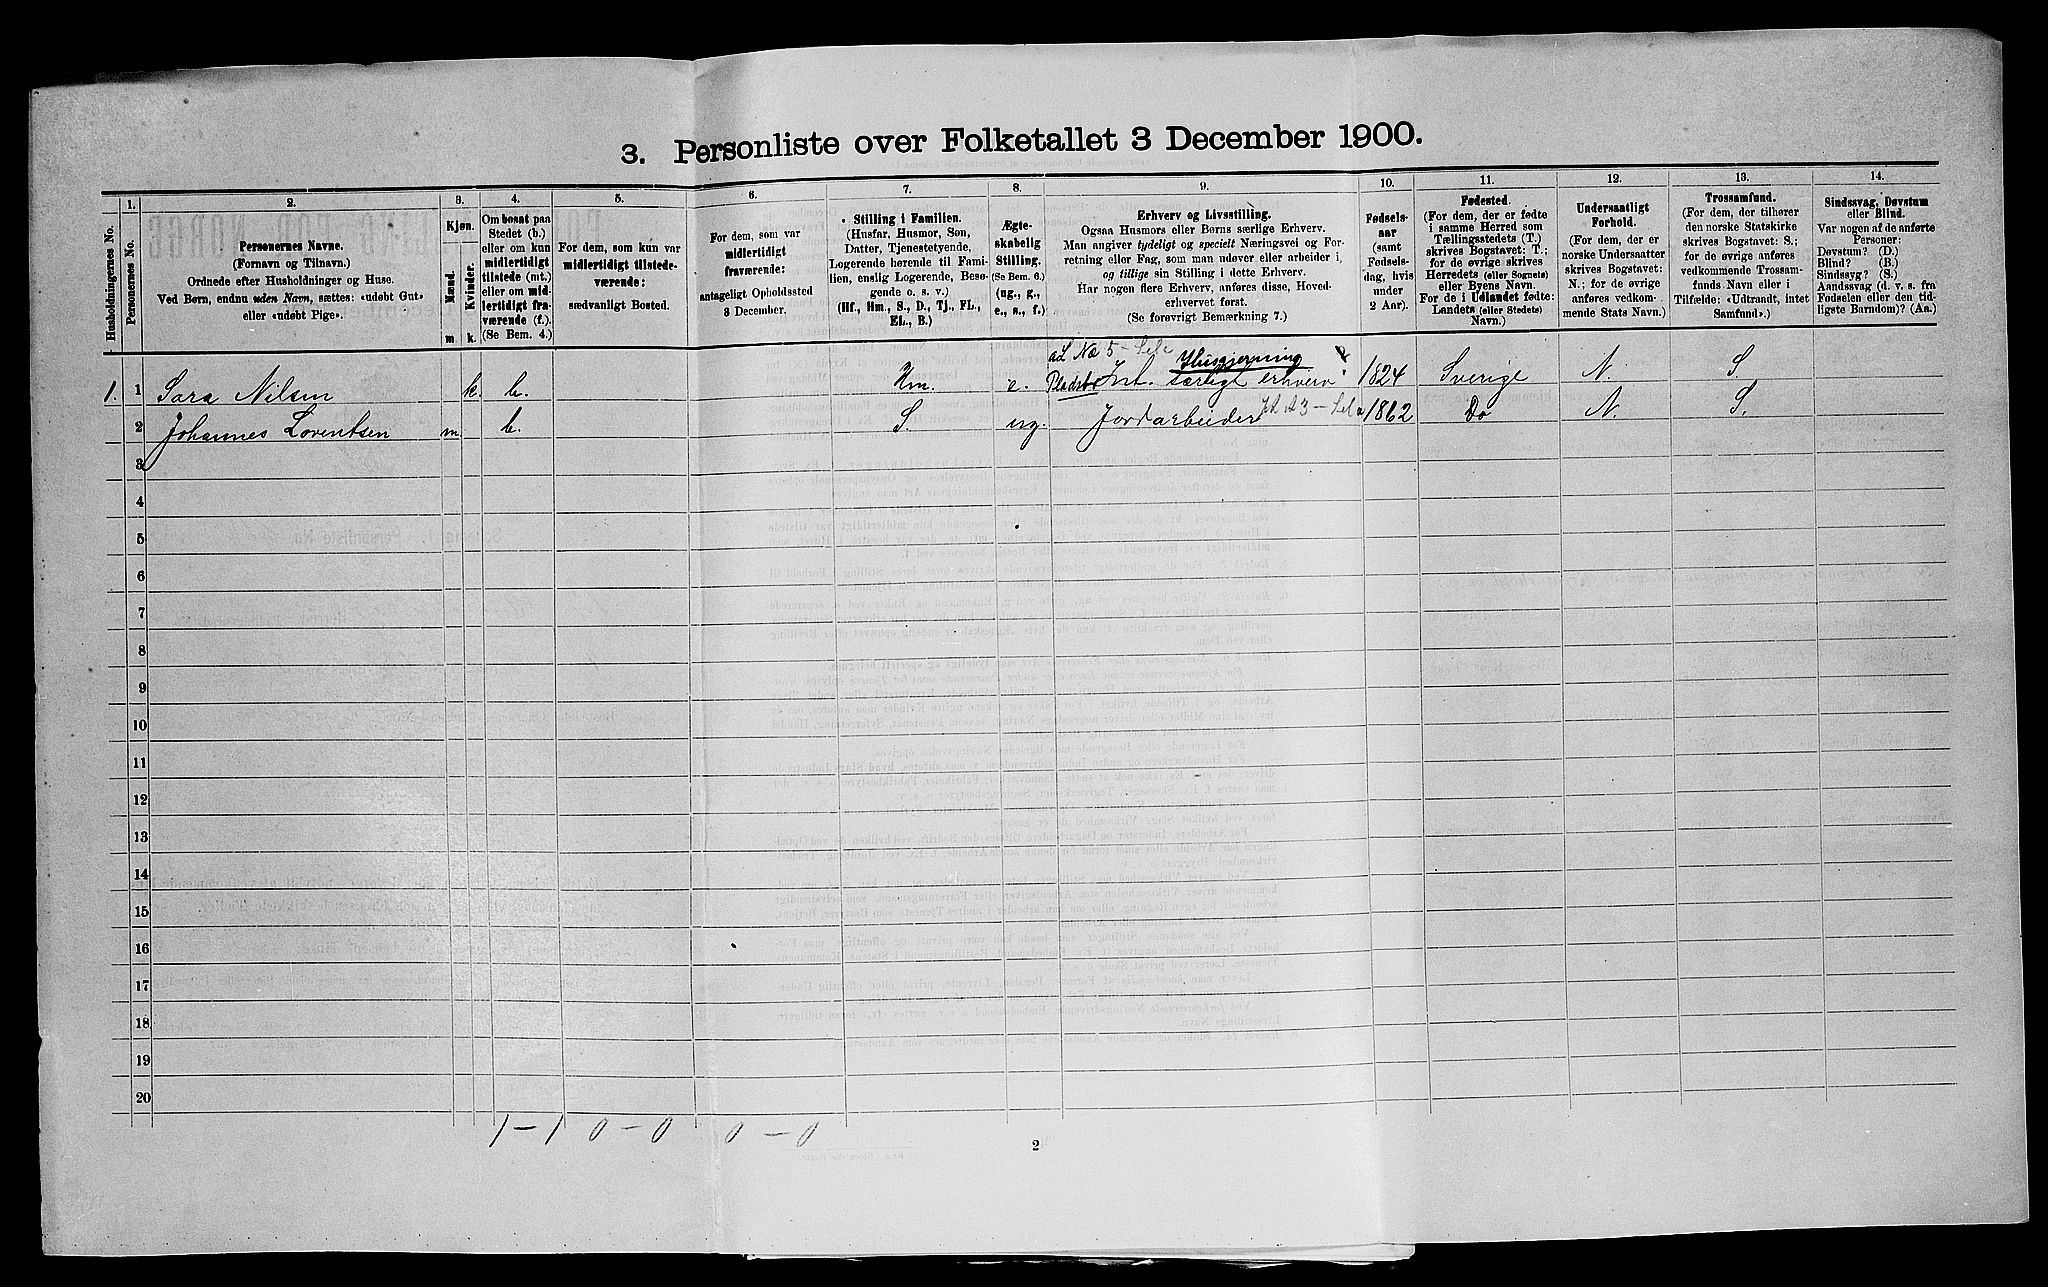 3. Personliste over Folketallet 3 December 1900.
Husholdningernes No.
1.
Personernes No.
2.
Personernes Navne.
(Fornavn og Tilnavn.)
Ordnede efter Husholdninger og Huse.
Ved Børn, endnu uden Navn, sættes: «udøbt Gut»
eller «udøbt Pige».
3.
Kjøn.
Mænd.
Kvinder.
m. k.
4.
Om bosat paa
Stedet (b.)
eller om kun
midlertidigt
tilstede (mt.)
eller om mid-
lertidigt fra-
værende (f.).
(Se Bem. 4.)
5.
For dem, som kun var
midlertidigt tilstede-
værende:
sædvanligt Bosted.
6.
For dem, som var
midlertidigt
fraværende:
antageligt Opholdssted
3 December.
7.
Stilling i Familien.
(Husfar, Husmor, Søn,
Datter, Tjenestetyende,
Logerende hørende til Fami-
lien, enslig Logerende, Besø-
gende o. s. v.)
(Hf., Hm., S., D., Tj., FL.,
EL., B.)
8.
Ægte-
skabelig
Stilling.
(Se Bem. 6.)
(ug., g.,
e., s., f.)
9.
Erhverv og Livsstilling.
Ogsaa Husmors eller Børns særlige Erhverv.
Man angiver tydeligt og specielt Næringsvei og For-
retning eller Fag, som man udøver eller arbeider i,
og tillige sin Stilling i dette Erhverv.
Har nogen flere Erhverv, anføres disse, Hoved-
erhvervet først.
(Se forøvrigt Bemærkning 7.)
10.
Fødsels-
aar
(samt
Fødsels-
dag, hvis
under
2 Aar).
11.
Fødested.
(For dem, der er fødte
i samme Herred som
Tællingsstedets (T.)
skrives Bogstavet: T.;
for de øvrige skrives
Herredets (eller Sognets)
eller Byens Navn.
For de i Udlandet fødte:
Landets (eller Stedets)
Navn.)
12.
Undersaatligt
Forhold.
(For dem, der er
norske Undersaatter
skrives Bogstavet:
N.; for de øvrige
anføres vedkom-
mende Stats Navn.)
13.
Trossamfund.
(For dem, der tilhører
den norske Statskirke
skrives Bogstavet: S.;
for de øvrige anføres
vedkommende Trossam-
funds Navn eller i
Tilfælde: «Udtraadt, intet
Samfund».)
14.
Sindssvag, Døvstum
eller Blind.
Var nogen af de anførte
Personer:
Døvstum? (D.)
Blind? (B.)
Sindssyg? (S.)
Aandssvag (d. v. s. fra
Fødselen eller den tid-
ligste Barndom)? (Aa.)
ad No 5 – Husgjerning
1. 1 Sara Nilsen k. b. Hm. e. Int. særligt erhverv 1824 Sverige N. S.
2 Johannes Lorentsen m. b. S. ug. Jordarbeider 1862 Do N. S.
3
4
5
6
7
8
9
10
11
12
13
14
15
16
17
18
19
20
1 – 1 0 – 0 0 – 0
2